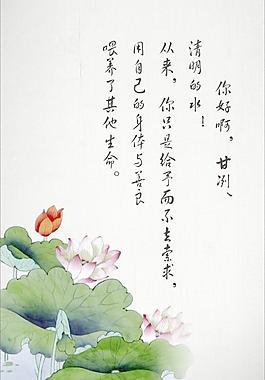 你好啊，甘冽、
清明的水！
从来，你只是给予而不去索求，
用自己的身体与善良
喂养了其他生命。